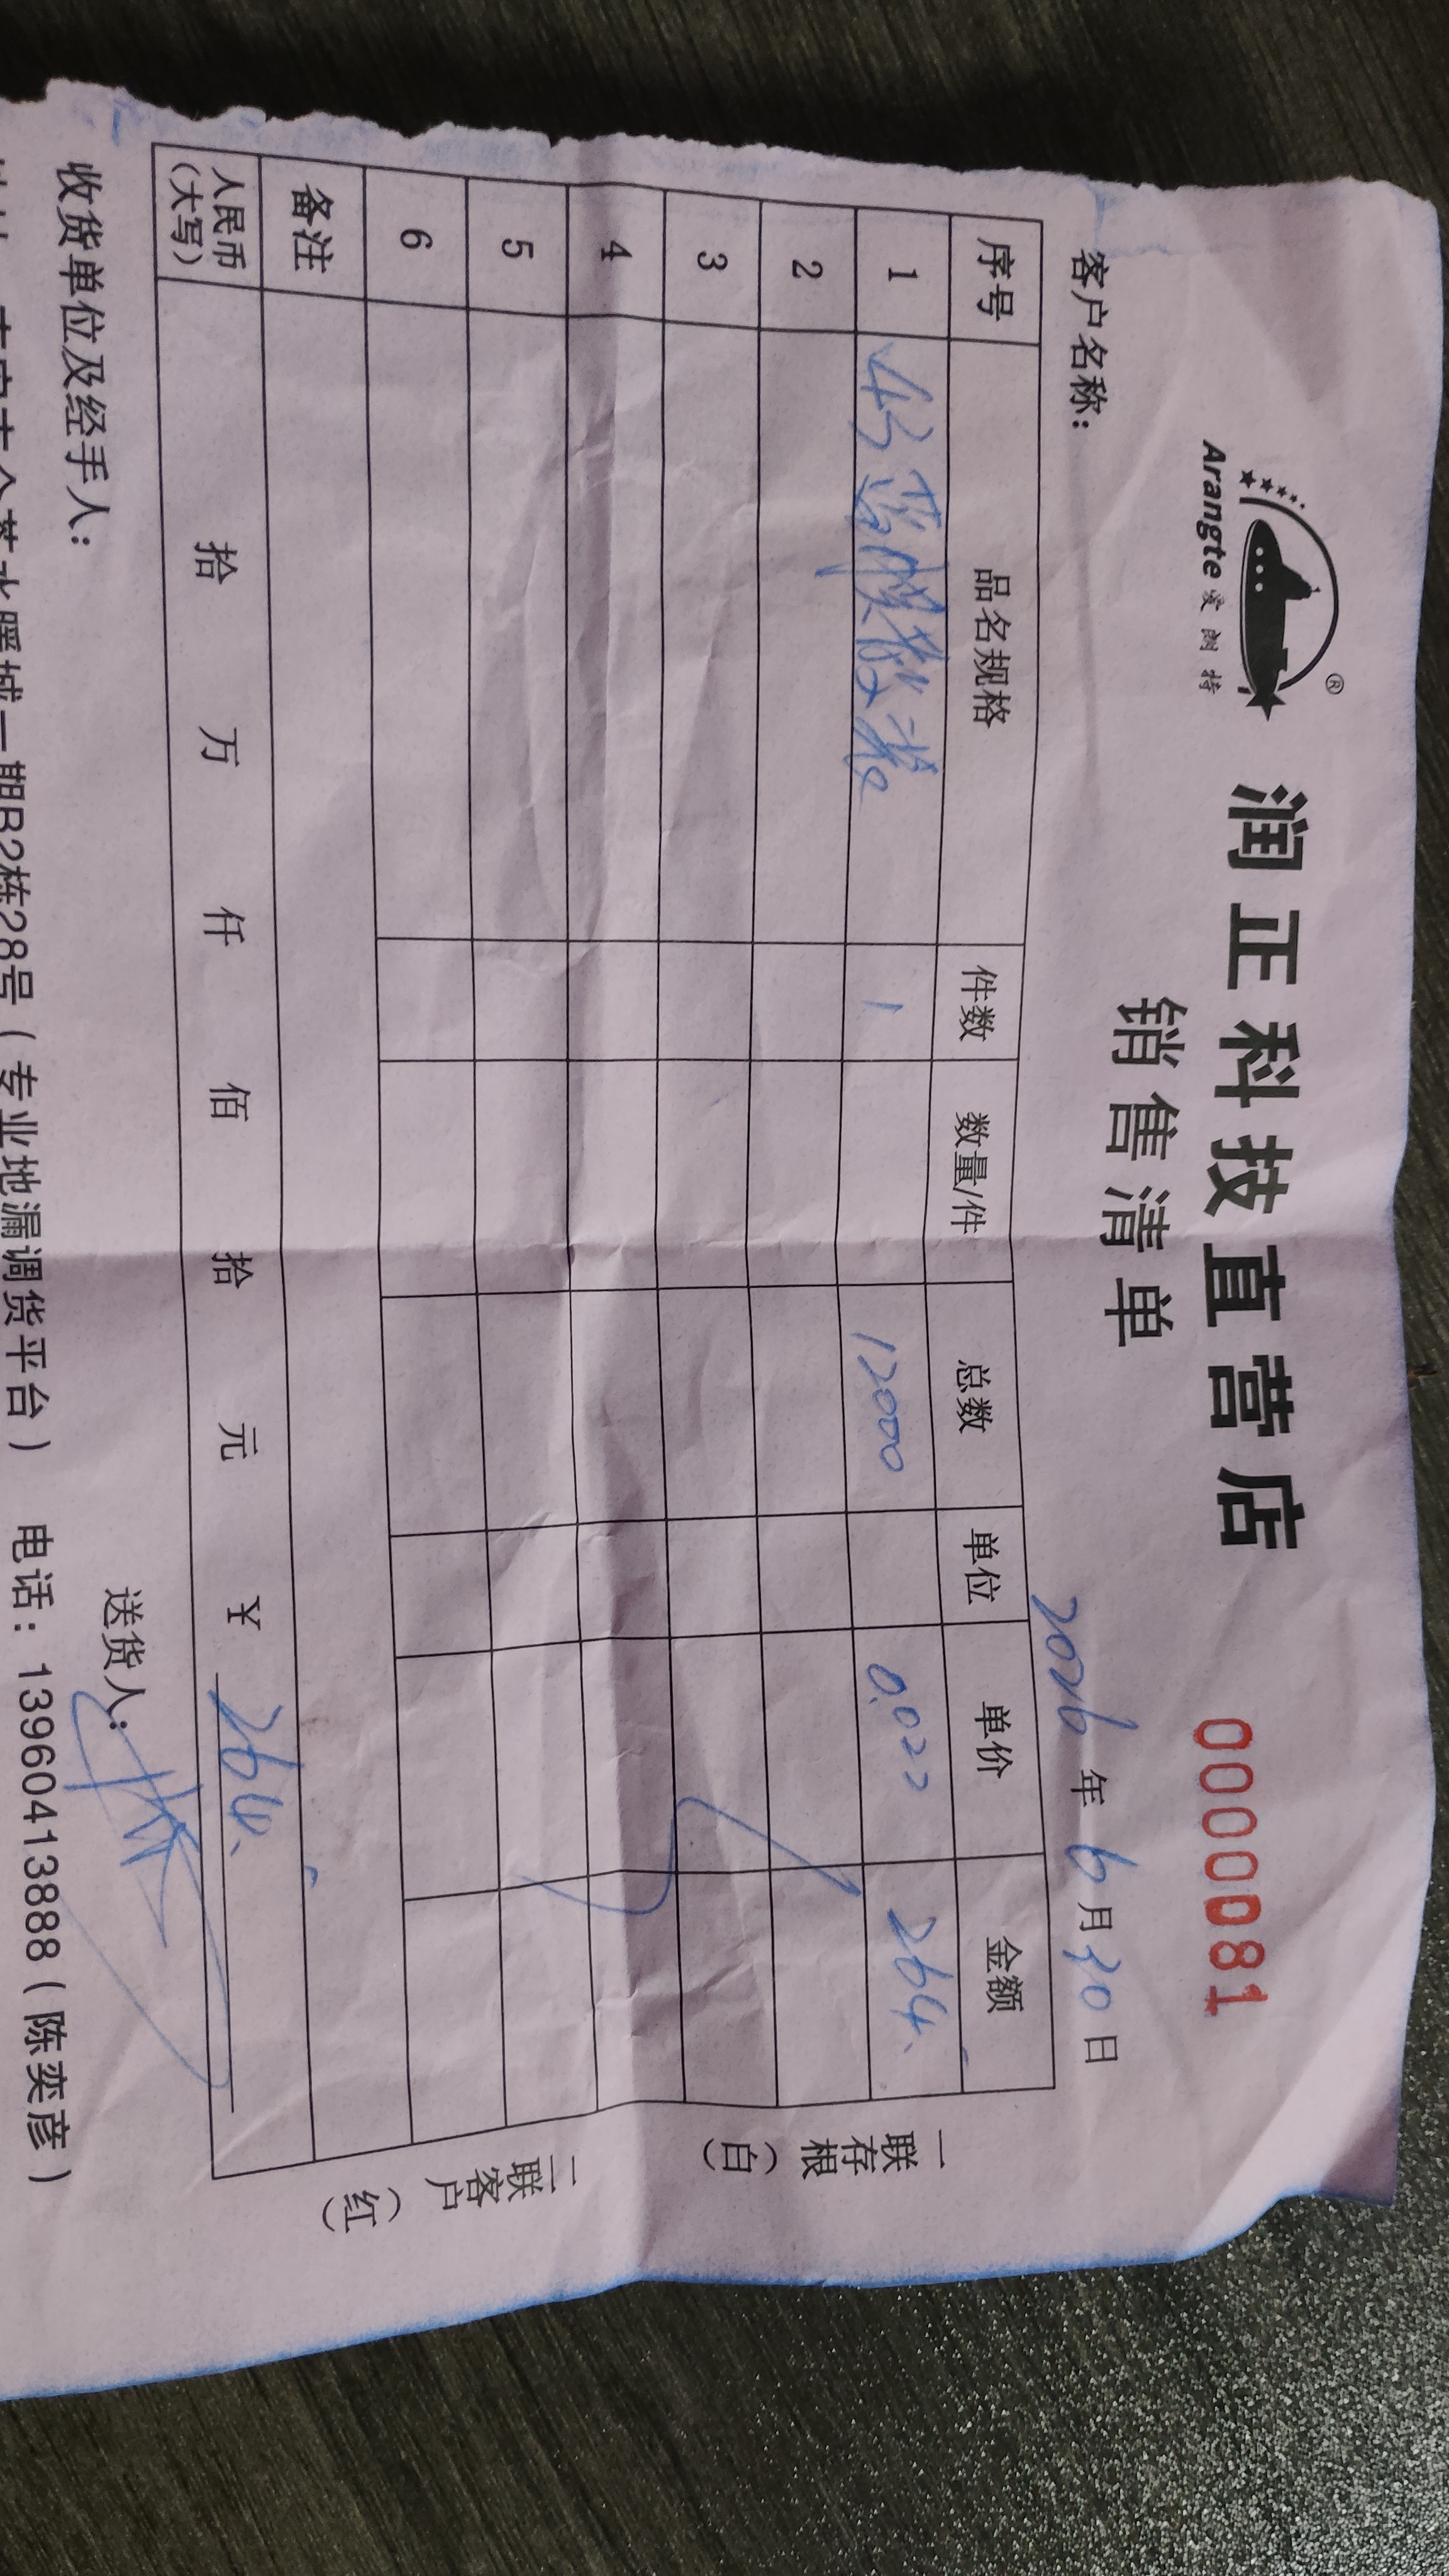 Arangte 爱朗特 ®
润正科技直营店
0000081
销售清单
客户名称：
2026 年 6 月 30 日
序号 品名规格 件数 数量/件 总数 单位 单价 金额
1 1 12000 0.022 264.
2
3
4
5
6
备注
人民币（大写） 拾 万 仟 佰 拾 元 ￥ 264.
一联存根（白）
二联客户（红）
收货单位及经手人：
送货人：
水暖城一期B2栋28号（专业地漏调货平台） 电话：13960413888（陈奕彦）